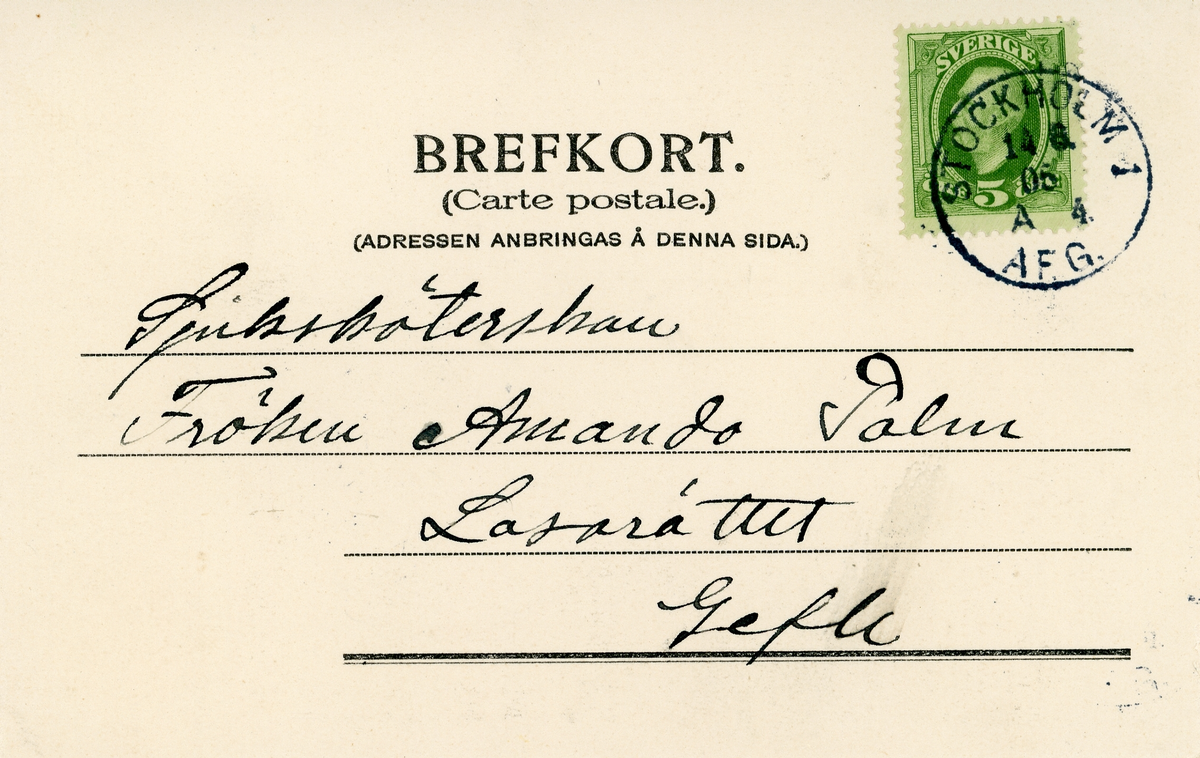 SVERIGE
5
STOCKHOLM 1
14 8
05
A 4
AFG.
BREFKORT.
(Carte postale.)
(ADRESSEN ANBRINGAS Å DENNA SIDA.)
Sjuksköterskan
Fröken Amanda Palm
Lasaráttet
Gefle